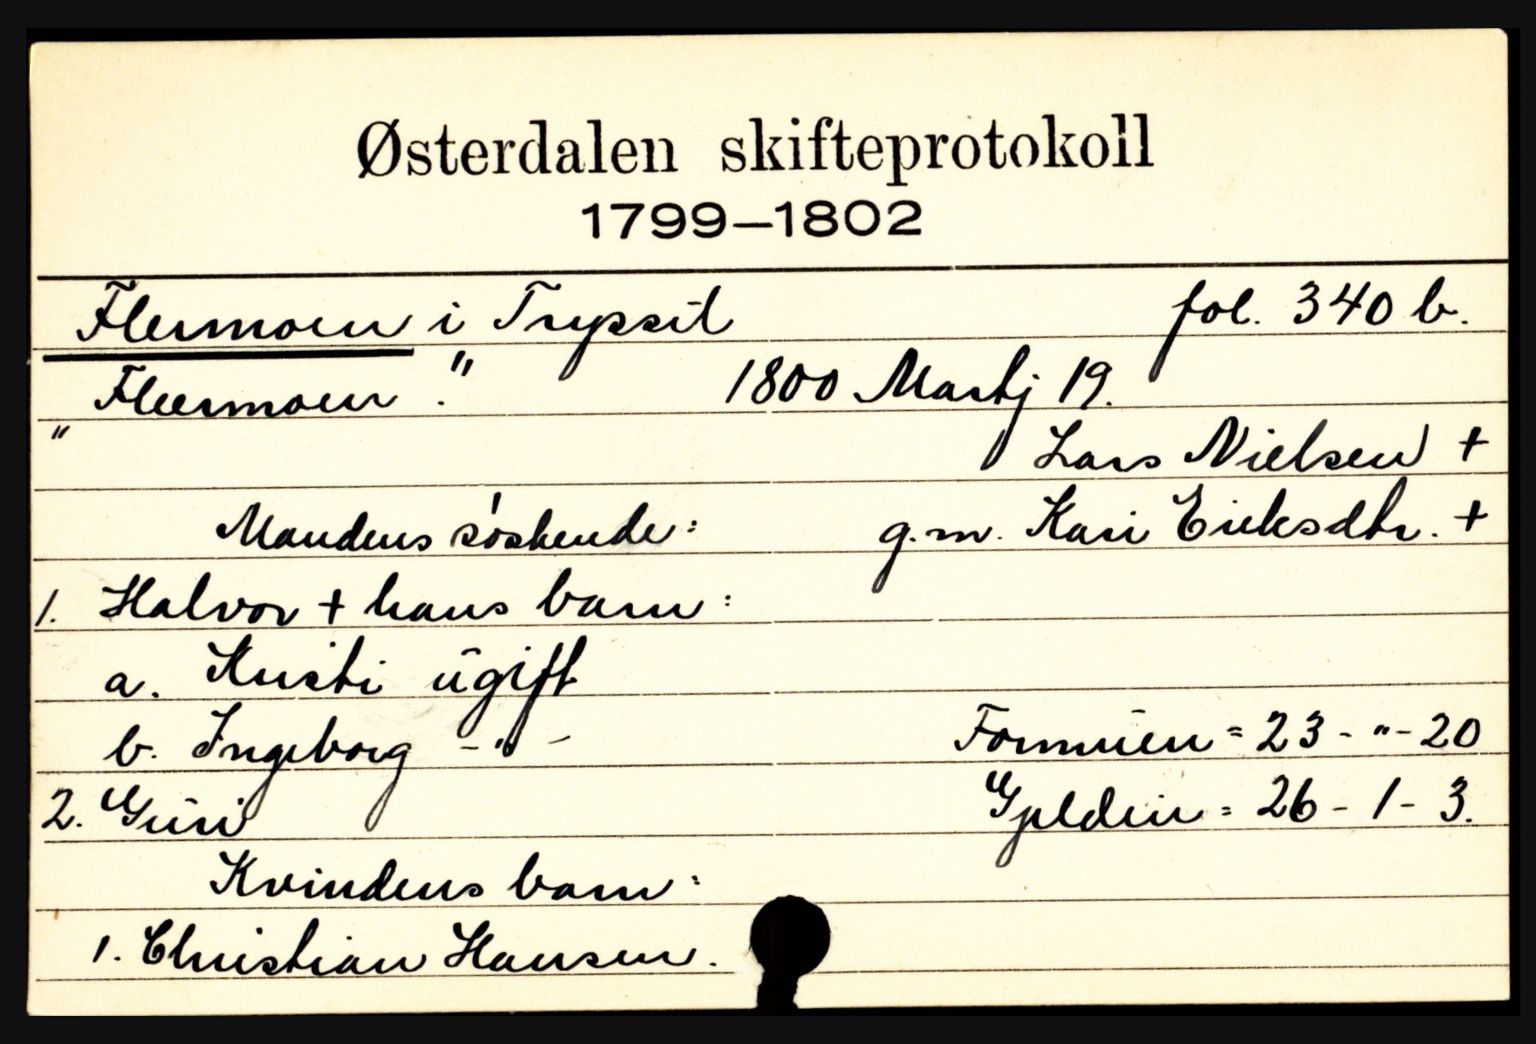 Østerdalen skifteprotokoll
1799-1802
Flermoen i Tryssil fol. 340 b.
"Fleermoen". 1800 Martj 19.
Lars Nielsen +
Mandens søskende: g.m. Kari Eriksdtr. +
1. Halvor + hans barn:
a. Kristi ugift
b. Ingeborg -"-
Formuen = 23-"-20
2. Guri Gjelden = 26-1-3.
Kvindens barn:
1. Christian Hansen.